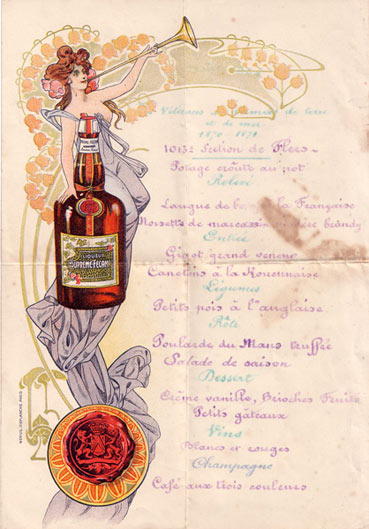 Vétérans des armées de terre
et de mer
1870-1871
1013e Section de Flers
Potage croûte au pot
Relevé
Langue de bœuf à la Française
Noisette de marcassin brandy
Entrée
Gigot grand veneur
Canetons à la Rouennaise
Légumes
Petits pois à l'anglaise
Rôti
Poularde du Mans truffée
Salade de saison
Dessert
Crême vanille, Brioches Fruits
Petits gâteaux
Vins
Blancs et rouges
Champagne
Café aux trois couleurs
LIQUEUR
SUPREME FECAMP